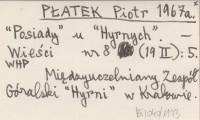 PŁATEK Piotr 1967a.
"Posiady" u "Hyrnych". –
Wieści nr 8 (19 II): 5.
WHP
Międzyuczelniany Zespół
Góralski "Hyrni" w Krakowie.